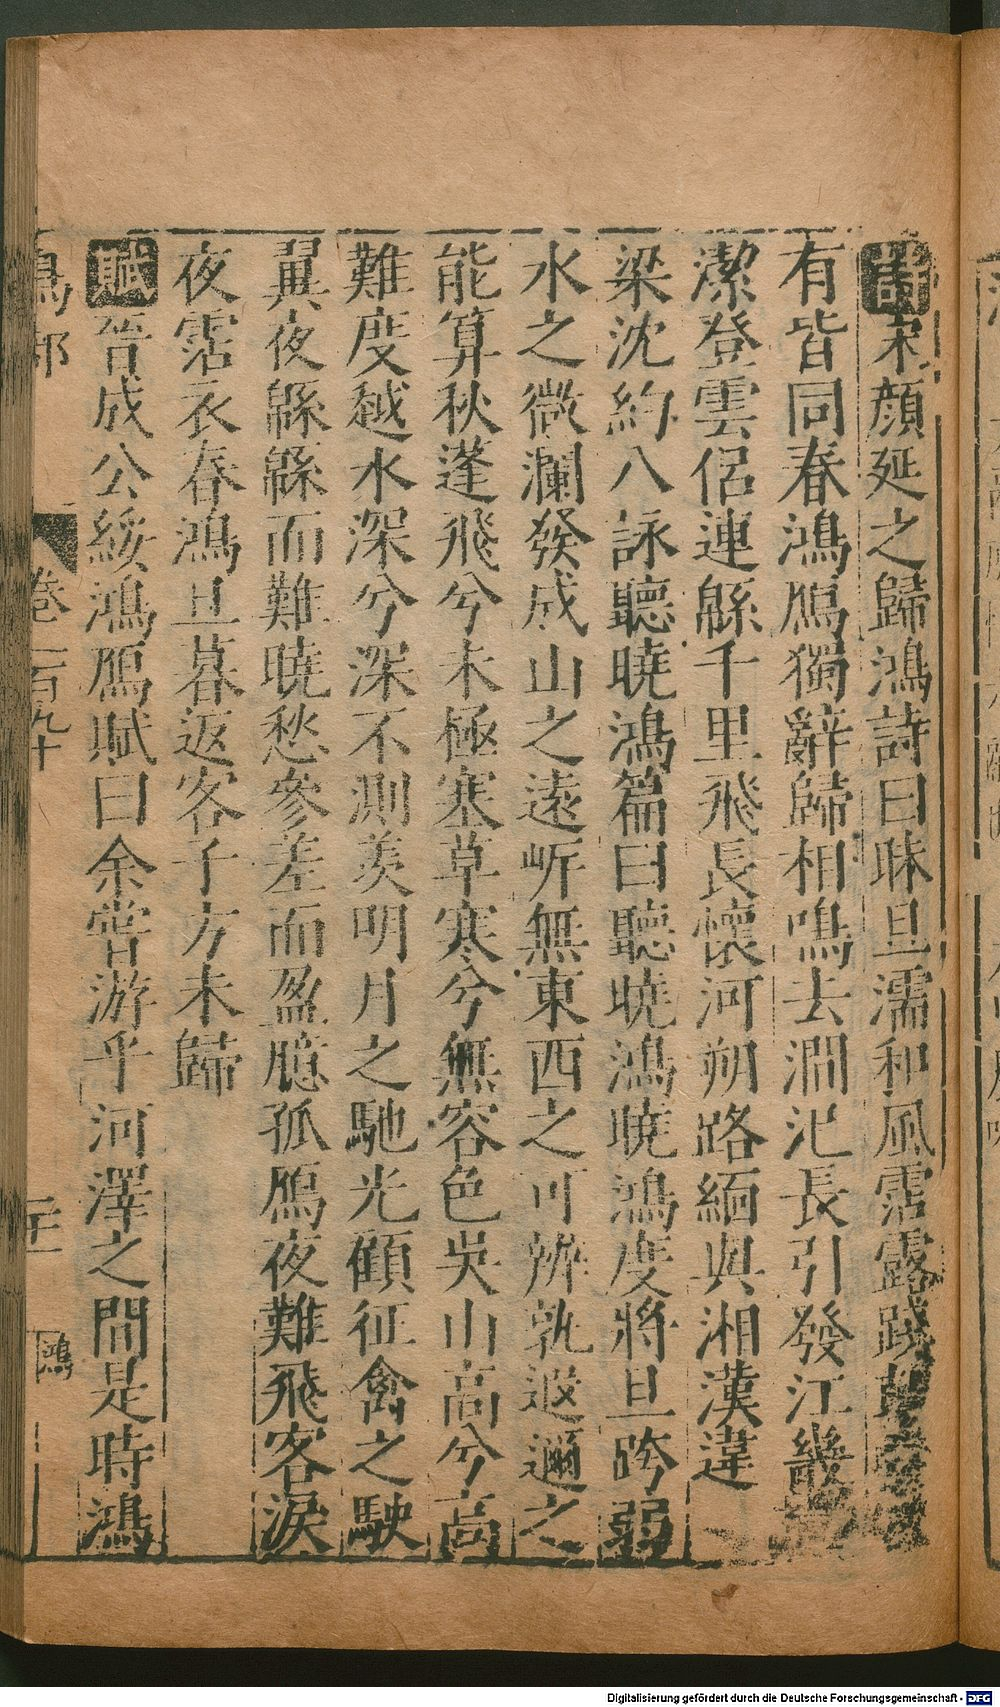 詩宋顏延之歸鴻詩曰昧旦濡和風霑露踐
有皆同春鴻鴈獨辭歸相鳴去澗汜長引發江畿
潔登雲侶連緜千里飛長懷河朔路緬與湘漢違
梁沈約八詠聽曉鴻篇曰聽曉鴻曉鴻度將旦跨弱
水之微瀾發成山之遠岍無東西之可辨孰遐邇之
能算秋蓬飛兮未極塞草寒兮無容色吳山高兮高
難度越水深兮深不測羨明月之馳光顧征禽之駛
翼夜緜緜而難曉愁參差而盈臆孤鴈夜難飛客淚
夜霑衣春鴻旦暮返客子方未歸
賦晉成公綏鴻鴈賦曰余嘗游乎河澤之間是時鴻
鳥部 卷一百九十 二十一 鴻
Digitalisierung gefördert durch die Deutsche Forschungsgemeinschaft - DFG